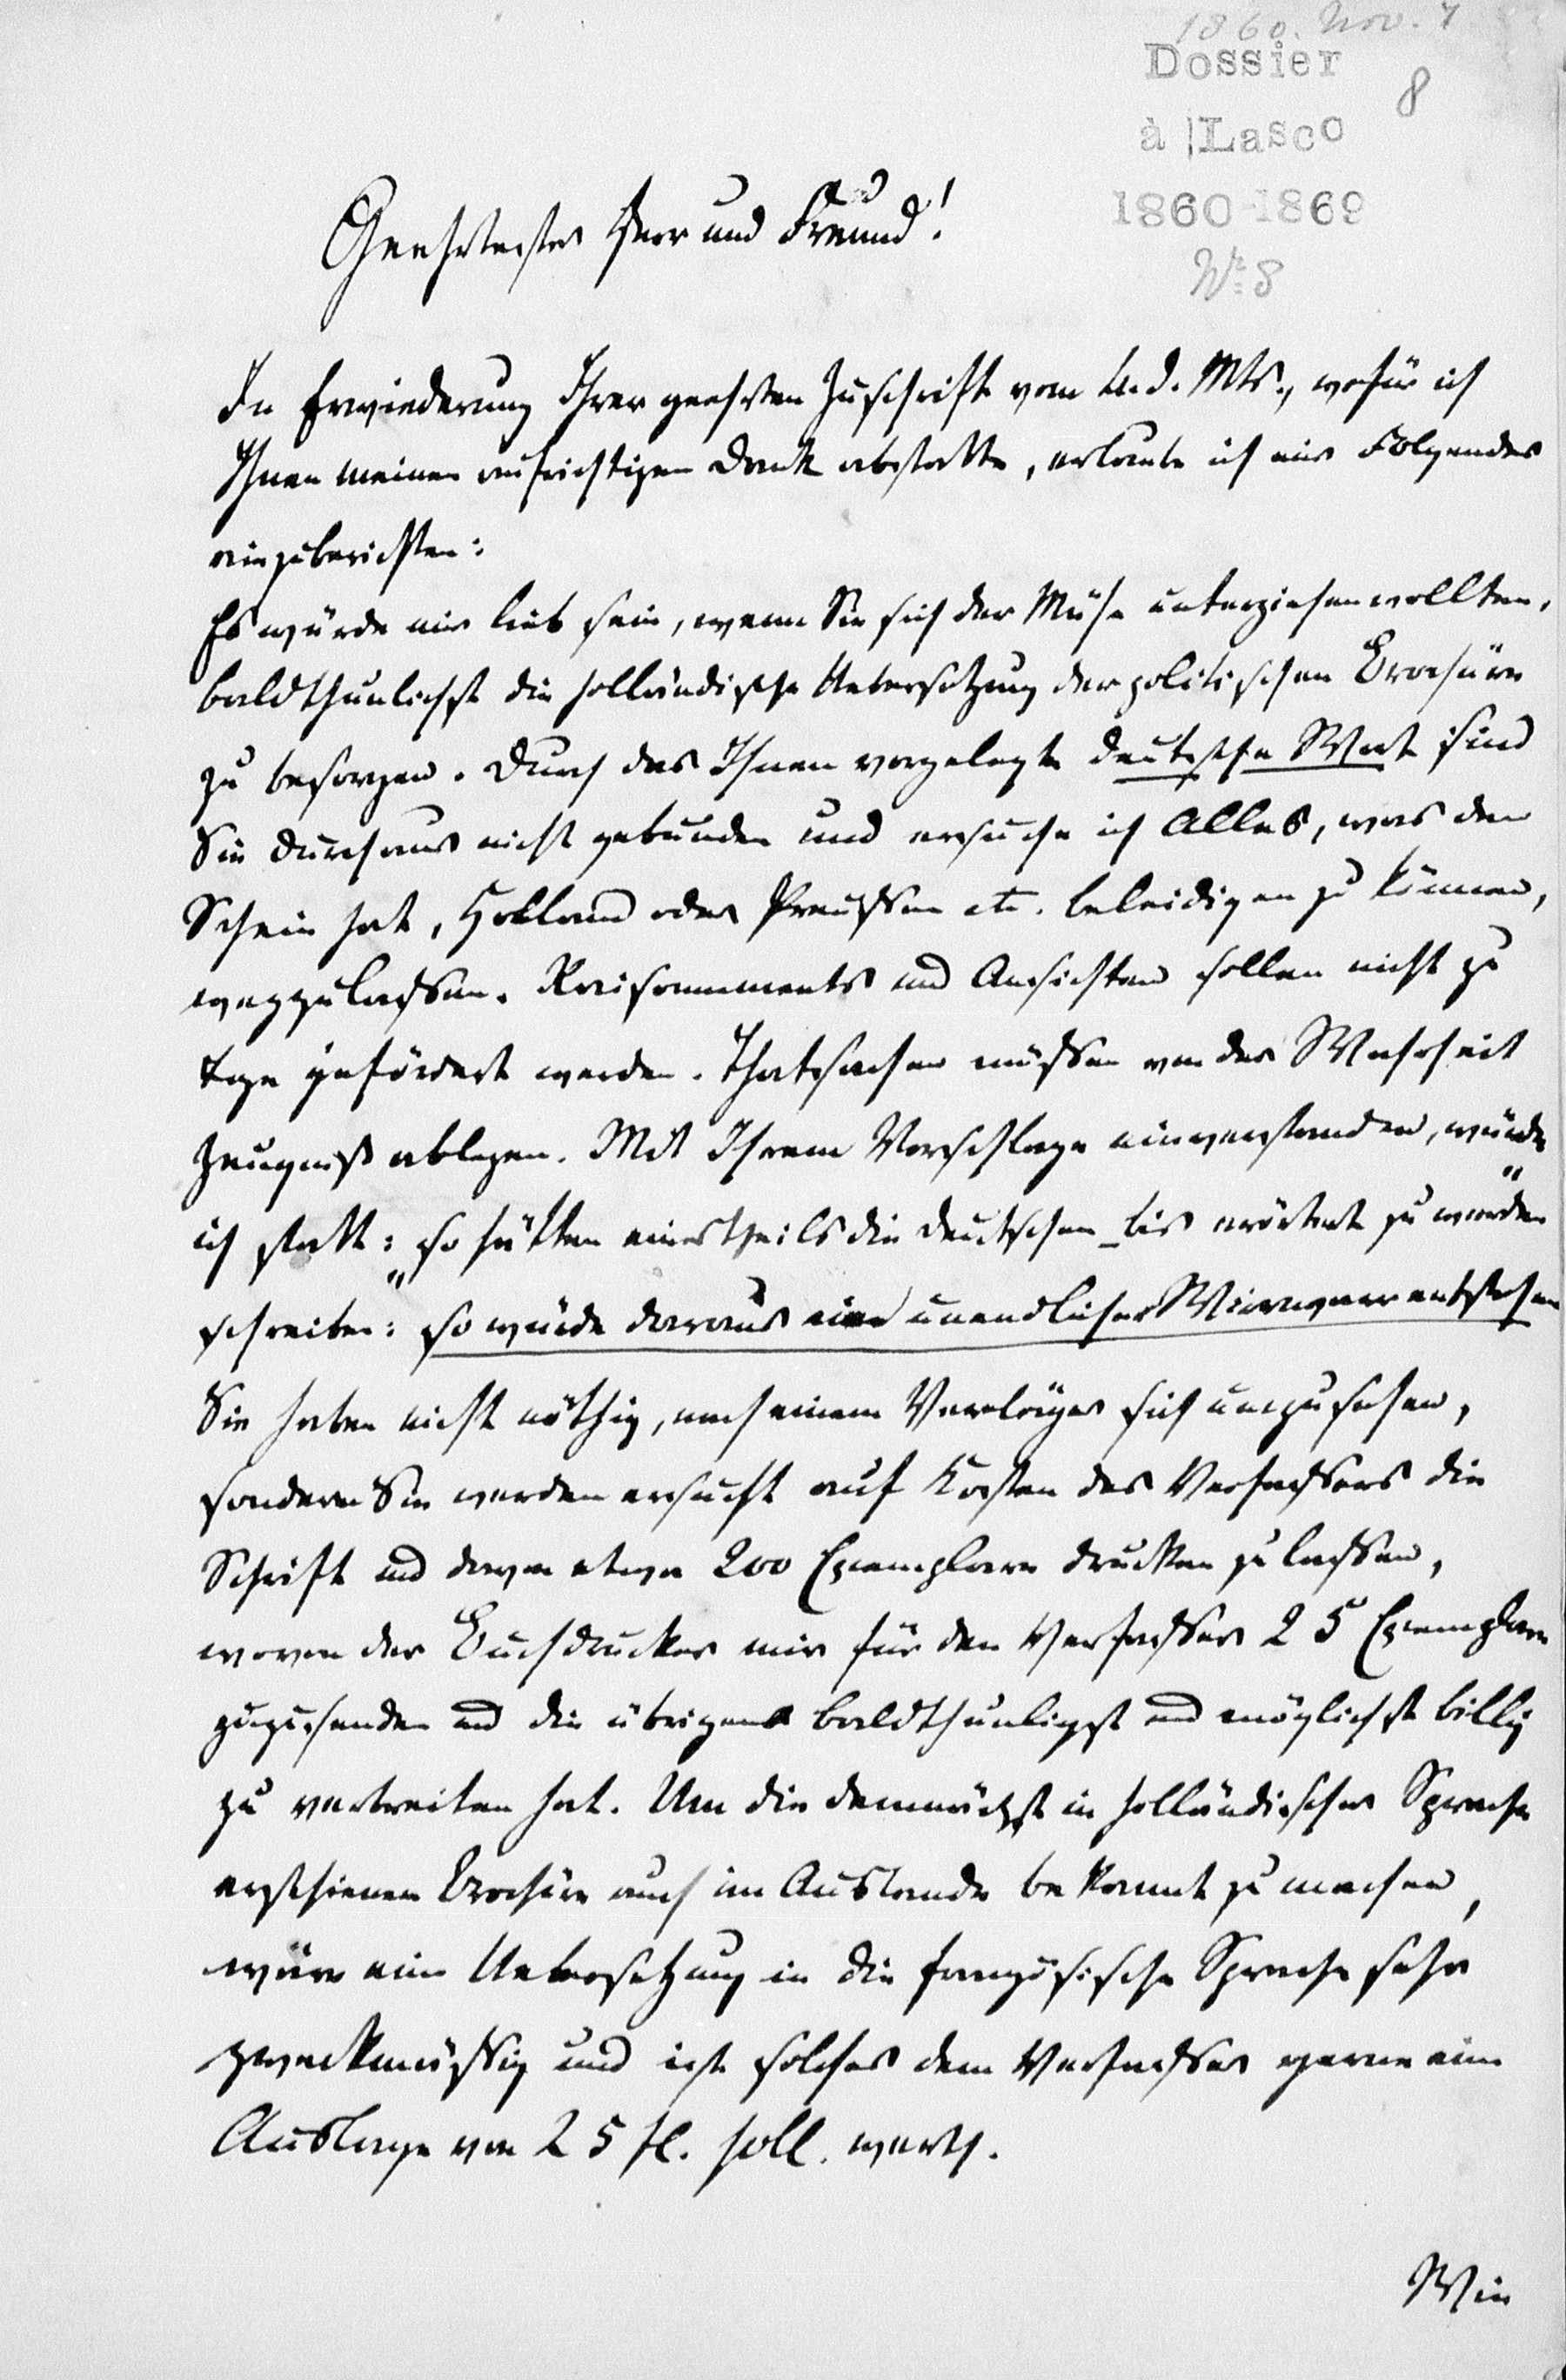 1860. Nov. 7
Dossier
8
à Lasco
1860-1869
No. 8
Geehrtester Herr und Freund!
In Erwiederung Ihrer geehrten Zuschrift vom 4. d. Mts., wofür ich
Ihnen meinen aufrichtigen Dank abstatte, erlaube ich mir Folgendes
einzuberichten:
Es würde mir lieb sein, wenn Sie sich der Mühe unterziehen wollten,
baldthunlichst die holländische Uebersetzung der politischen Brochüre
zu besorgen. Durch das Ihnen vorgelegte deutsche Werk sind
Sie durchaus nicht gebunden und ersuche ich Alles, was den
Schein hat, Holland oder Preußen etc. beleidigen zu können,
wegzulassen. Raisonnements und Ansichten sollen nicht zu
Tage gefördert werden. Thatsachen müssen von der Wahrheit
Zeugniß ablegen. Mit Ihrem Vorschlage einverstanden, würde
ich statt: "so hätten einestheils die Deutschen – bis erörtert zu werden"
schreiben: so würde daraus ein unendlicher Wirrwarr entstehen
Sie haben nicht nöthig, nach einem Verleger sich umzusehen,
sondern Sie werden ersucht auf Kosten des Verfassers die
Schrift und davon etwa 200 Exemplare drucken zu lassen,
wovon der Buchdrucker mir für den Verfasser 25 Exemplare
zuzusenden und die übrigen baldthunligst und möglichst billig
zu verbreiten hat. Um die demnächst in holländischer Sprache
erschienen Brochüre auch im Auslande bekannt zu machen,
wäre eine Uebersetzung in die französische Sprache sehr
zweckmäßig und ist solches dem Verfasser gerne eine
Auslage von 25 fl. holl. werth.
Wie